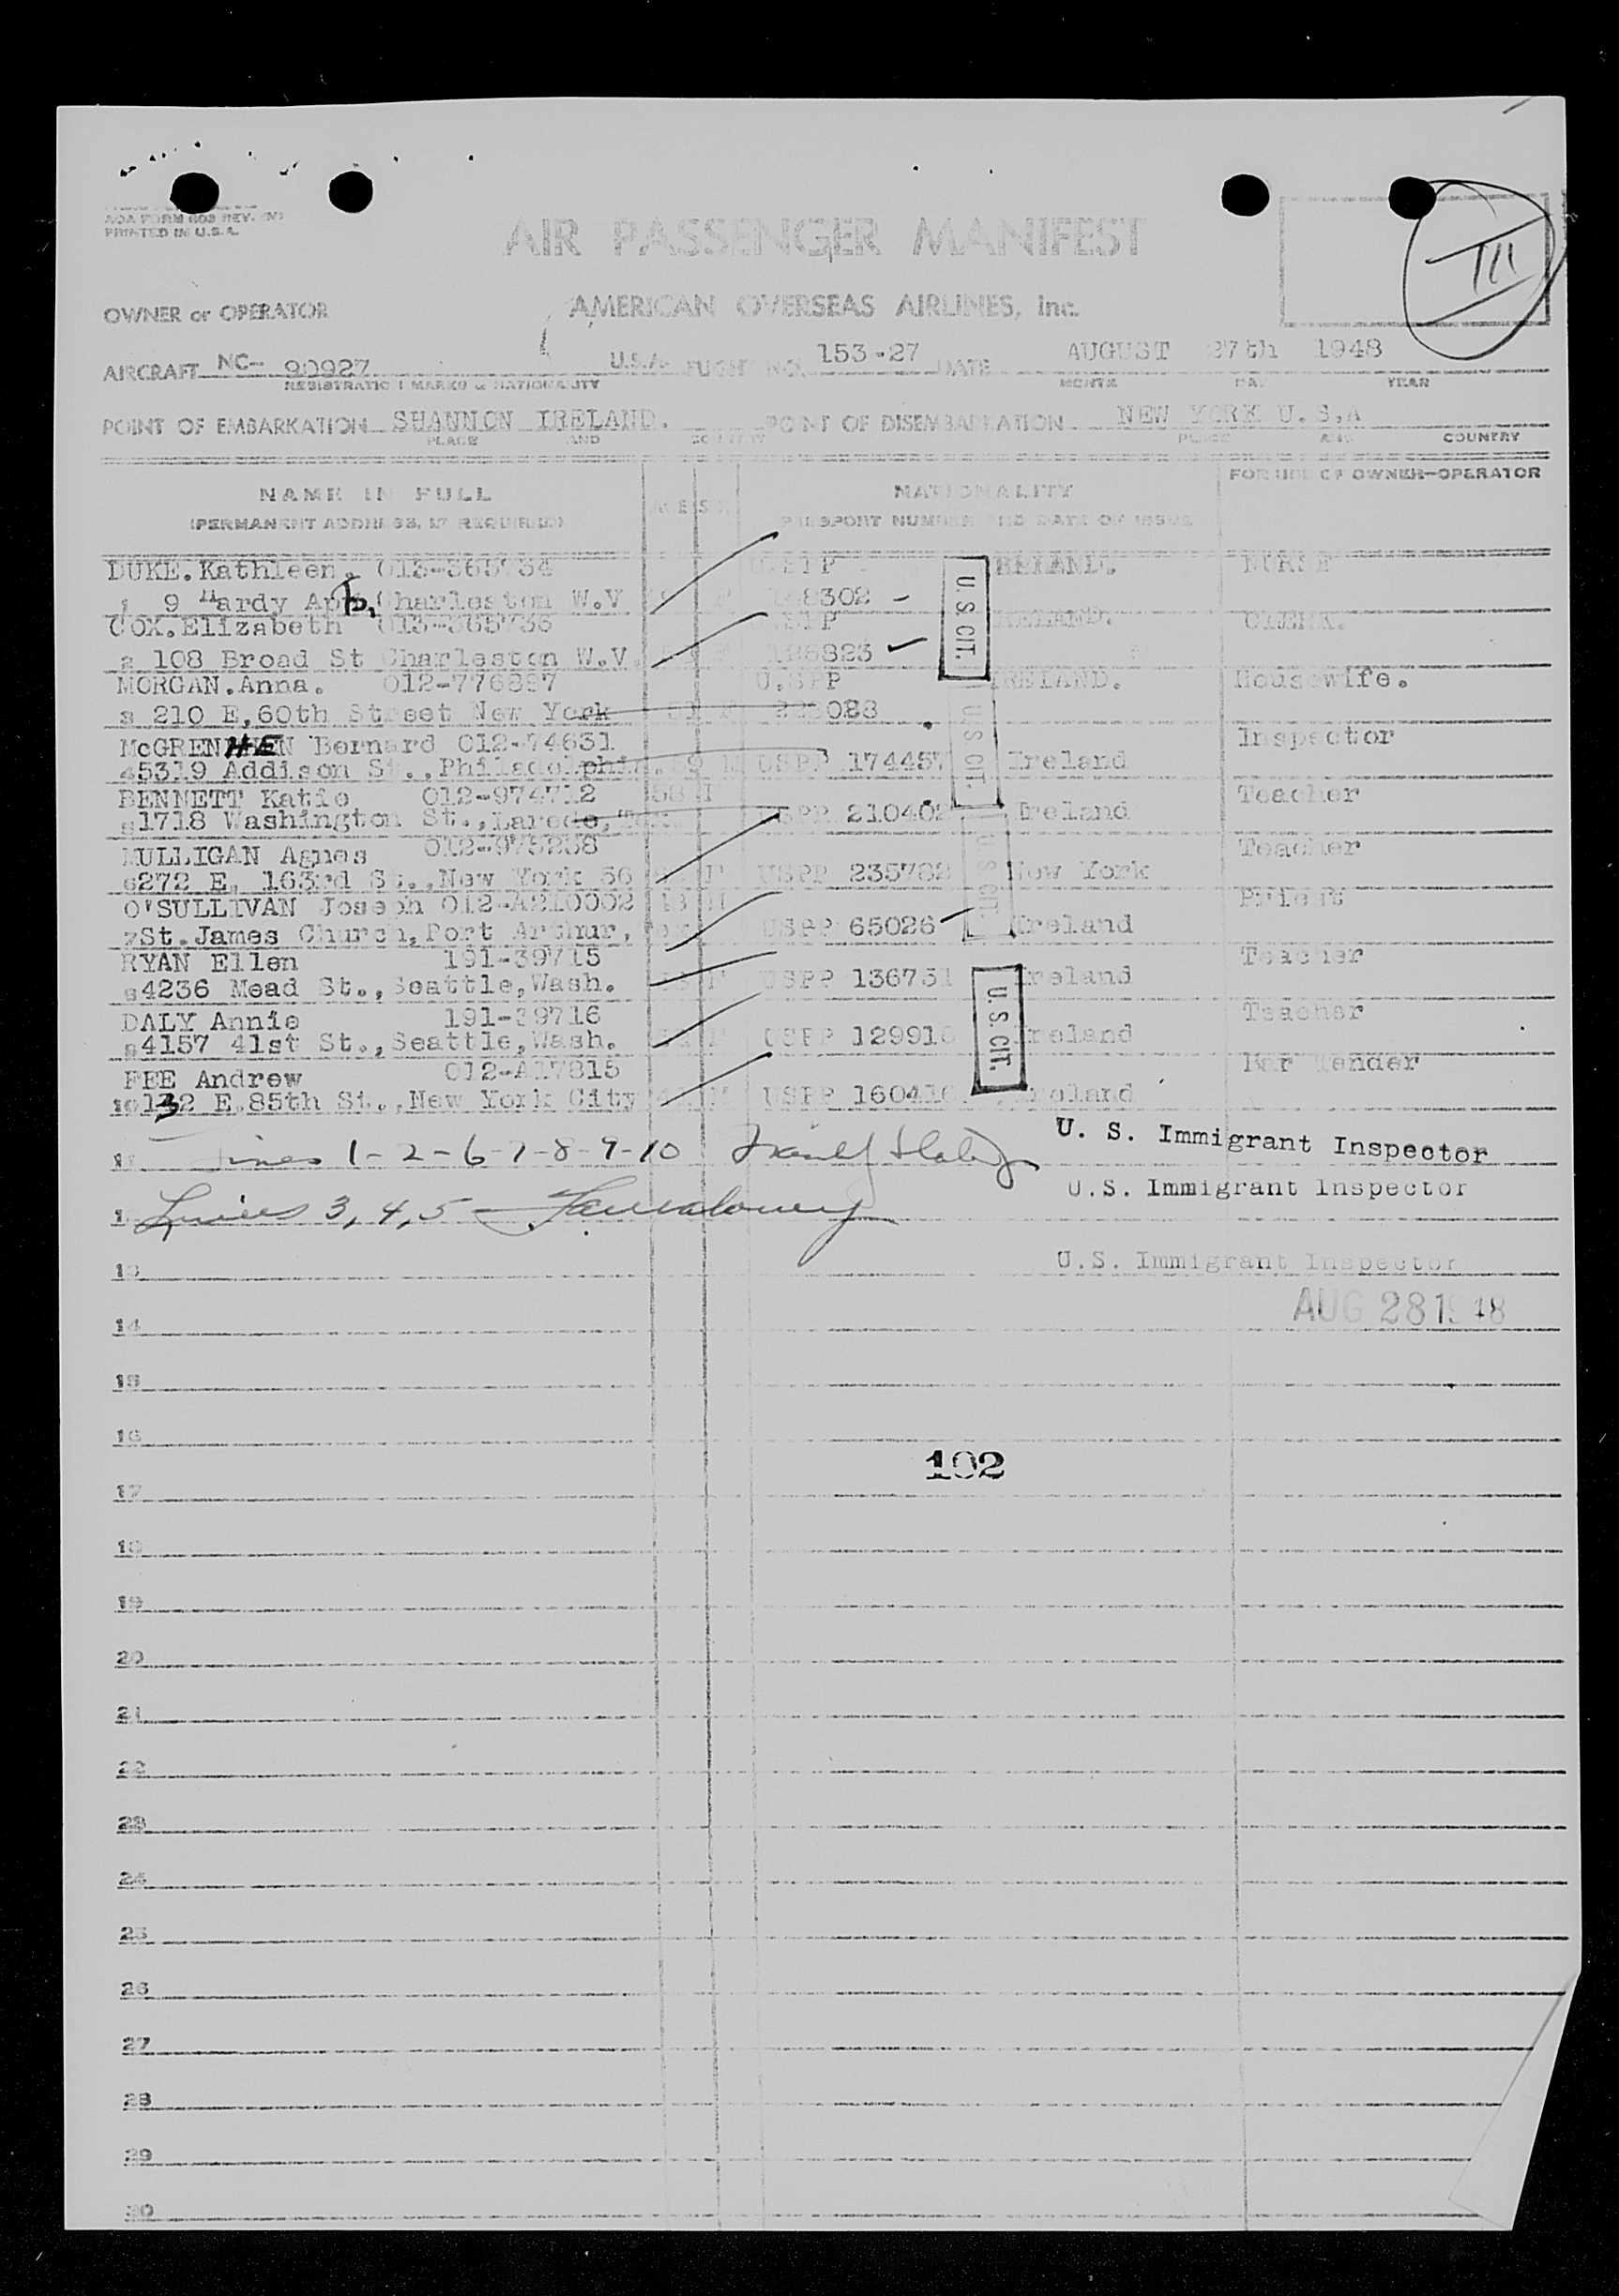 AOA FORM 608 REV.
PRINTED IN U.S.A.
AIR PASSENGER MANIFEST
OWNER or OPERATOR AMERICAN OVERSEAS AIRLINES, Inc.
III
AIRCRAFT NC- 90927 U.S.A. FLIGHT NO. 153-27 DATE AUGUST 27th 1948
REGISTRATION MARKS & NATIONALITY MONTH DAY YEAR
POINT OF EMBARKATION SHANNON IRELAND. POINT OF DISEMBARKATION NEW YORK U.S.A
PLACE AND COUNTRY PLACE AND COUNTRY
NAME IN FULL AGE SEX NATIONALITY FOR USE OF OWNER-OPERATOR
(PERMANENT ADDRESS, IF REQUIRED) PASSPORT NUMBER AND DATE OF ISSUE
DUKE.Kathleen. IRELAND. NURSE
1 9 Hardy Charleston W.V 8302
COX.Elizabeth IRELAND. CLERK.
2 108 Broad St Charleston W.V.
U.S.CIT.
MORGAN.Anna. U.SPP IRELAND. Housewife.
3 210 E,60th Street New York 088
McGRENHEN Bernard 012-74631 Inspector
4 5319 Addison St.,Philadelphia. USPP 174457 Ireland
U.S.CIT.
BENNETT Katie 012-974712 Teacher
5 1718 Washington St.,Laredo, USPP 210402 Ireland
MULLIGAN Agnes 012-975258 Teacher
6 272 E. 163rd St.,New York 56 F USPP 235702 New York
O'SULLIVAN Joseph Priest
7 St.James Church,Port Arthur, USPP 65026 Ireland
U.S.CIT.
RYAN Ellen 191-39715 Teacher
8 4236 Mead St.,Seattle,Wash. F USPP 136751 Ireland
DALY Annie 191-39716 Teacher
9 4157 41st St.,Seattle,Wash. USPP 129916 Ireland
U.S.CIT.
FEE Andrew 012-A17815 Bar Tender
10 132 E.85th St.,New York City USPP 160416 Ireland
11 Lines 1-2-6-7-8-9-10 U. S. Immigrant Inspector
U.S. Immigrant Inspector
1 Lines 3,4,5
13 U.S. Immigrant Inspector
14 AUG 28 1948
15
16
102
17
18
19
20
21
22
23
24
25
26
27
28
29
30